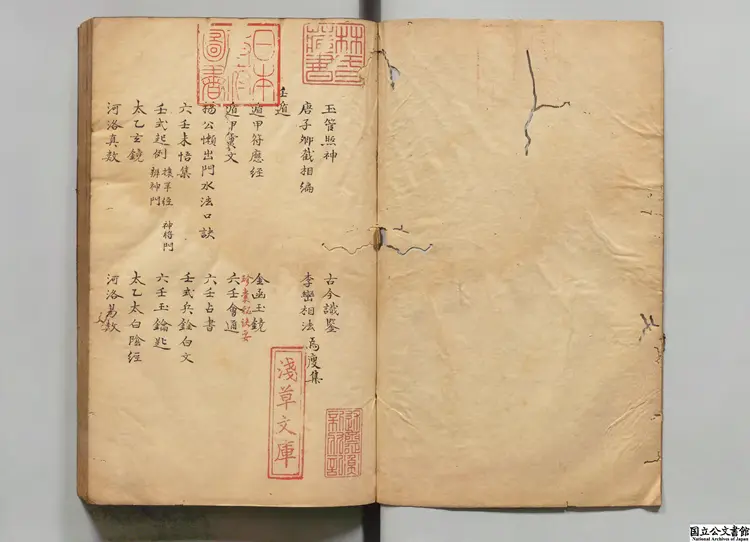 林氏藏書
日本政府圖書
玉管照神　古今識鑒
唐子卿相編　李巒相法　爲瘦集
壬遁
遁甲符應經　金函玉鏡
遁甲奧文　六壬會通
楊公懶出門水法口訣　六壬占書
六壬未悟集　壬式兵銓白文
壬式起例　辨神門　神將門　六壬玉鑰匙
太乙玄鏡　太乙太白陰經
河洛真数　河洛易数
淺草文庫
国立公文書館
National Archives of Japan